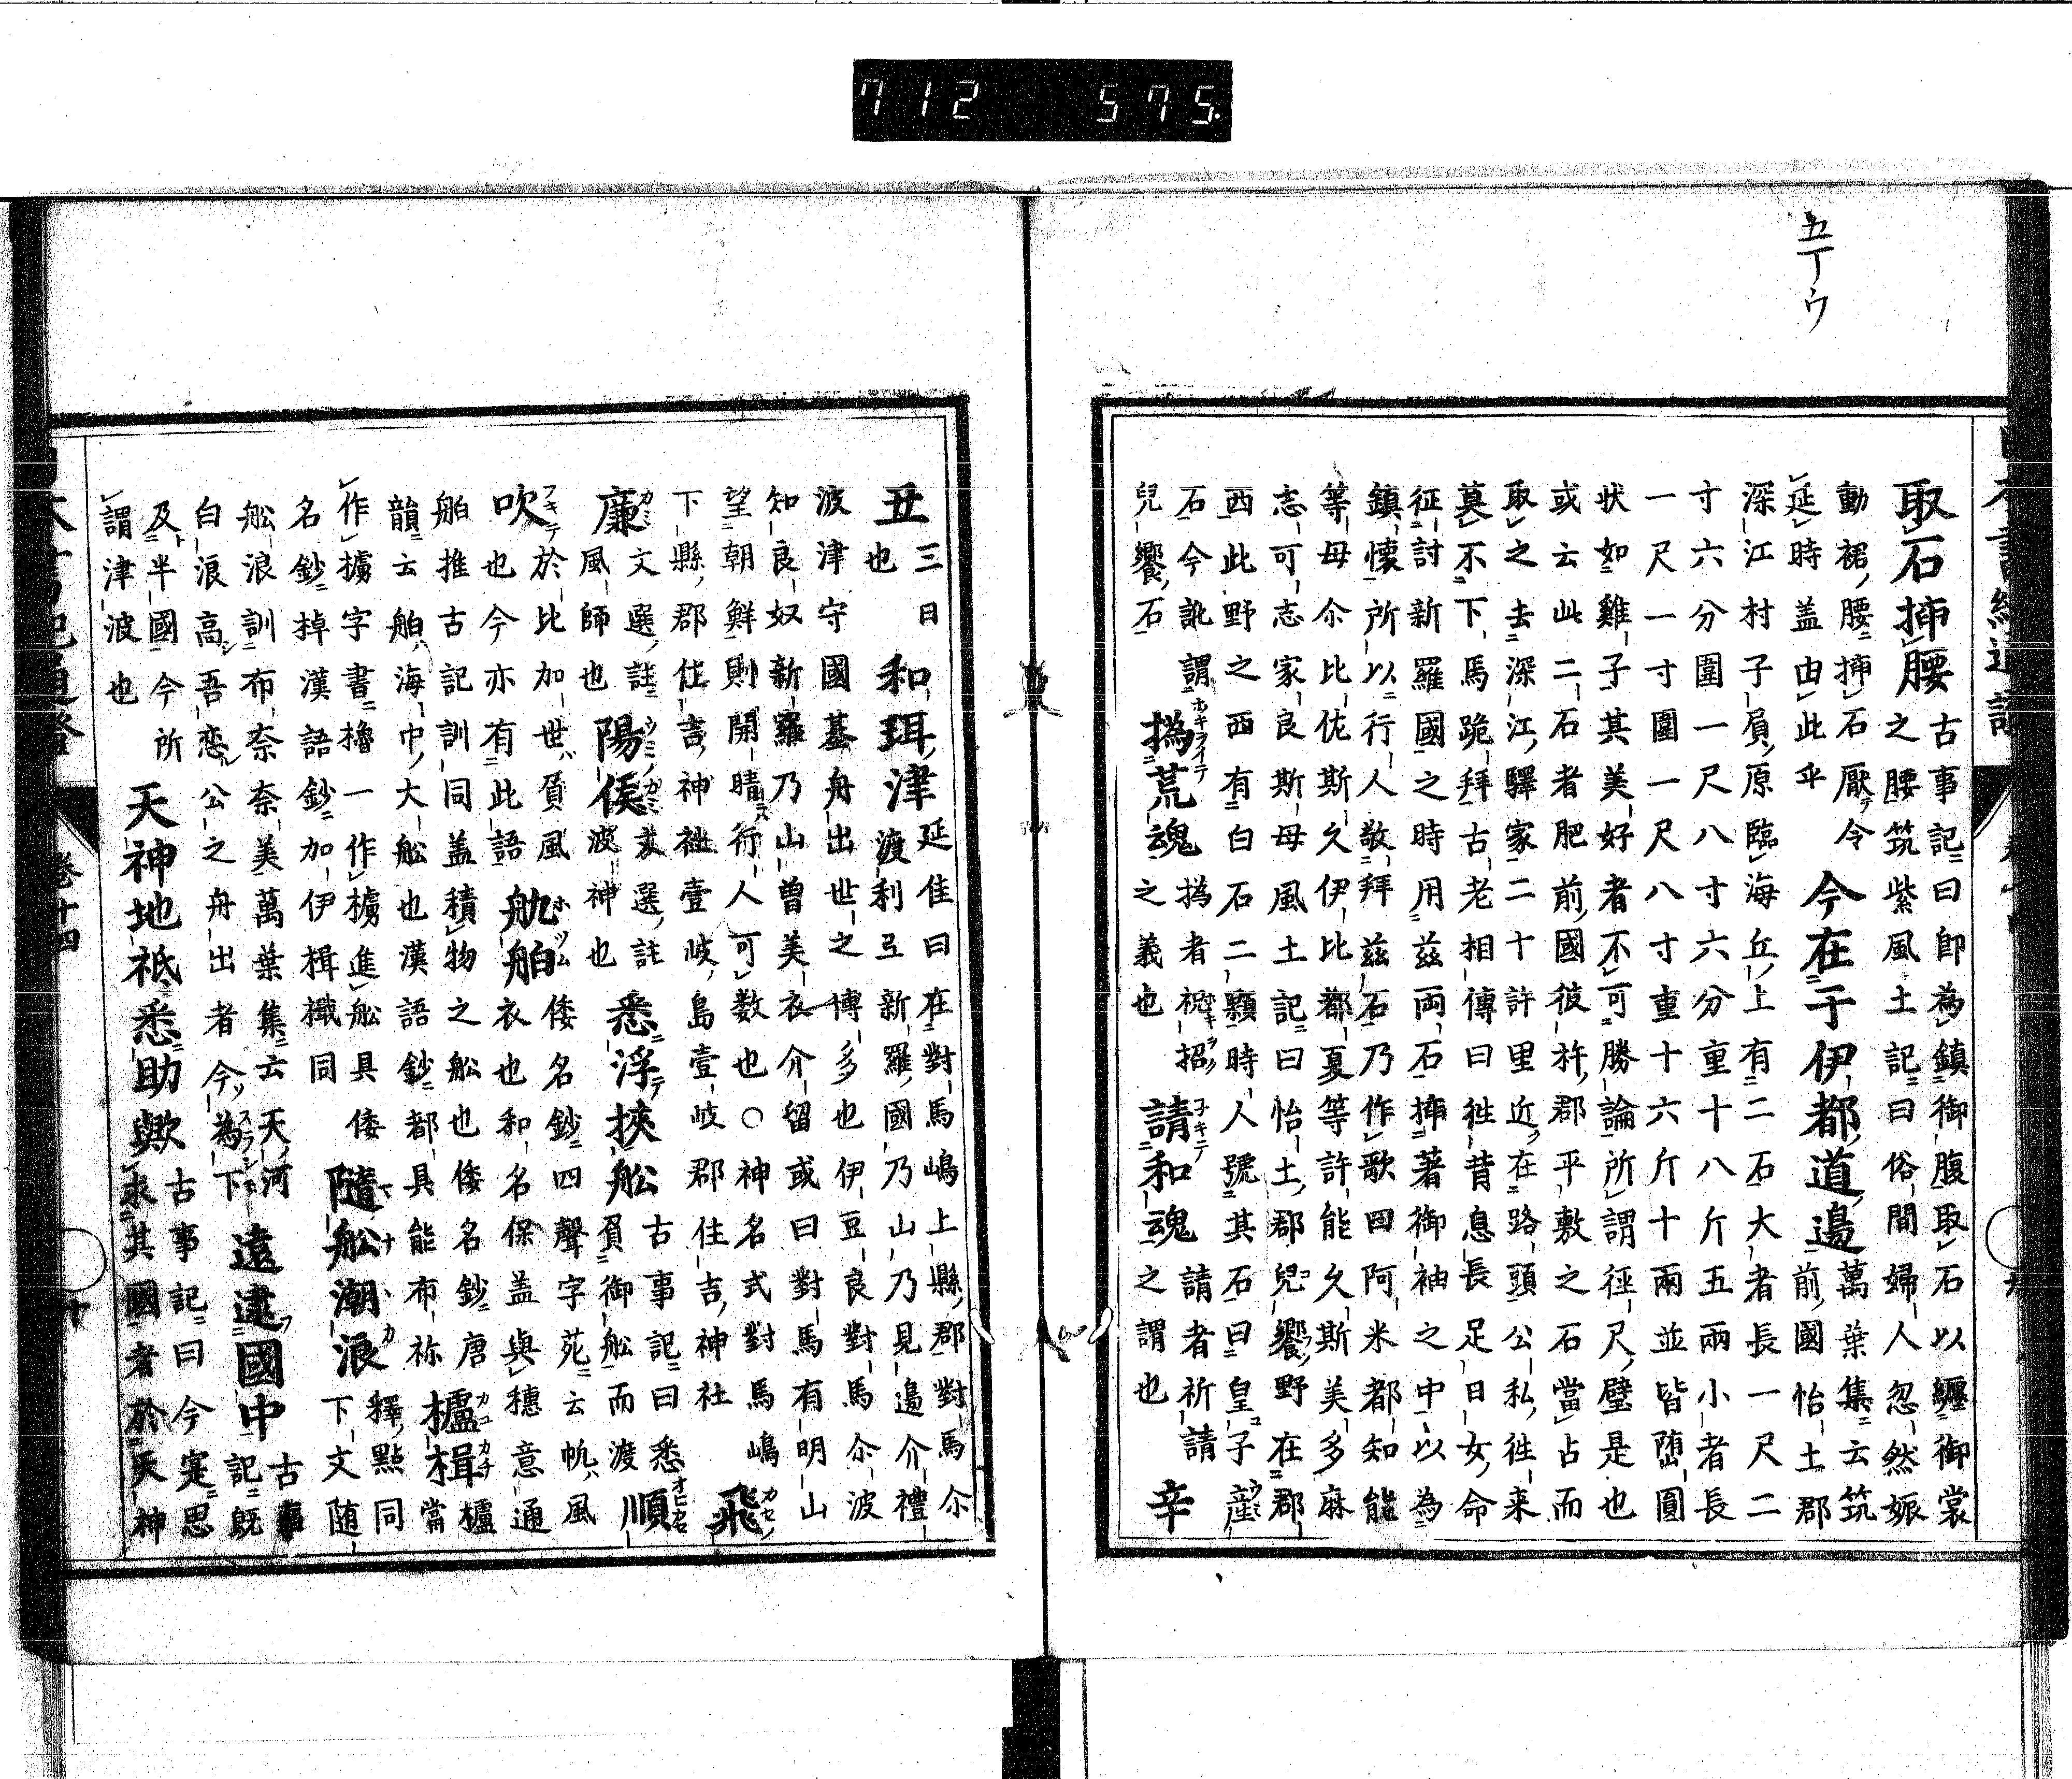 五丁ウ
取石挿腰
古事記曰卽為鎮御腹取石以纒御裳
之腰筑紫風土記曰俗間婦人忽然娠
動裙腰挿石厭令
延時盖由此乎
今在于伊都道邊
萬葉集云筑
前國怡土郡
深江村子負原臨海丘上有二石大者長一尺二
寸六分圍一尺八寸六分重十八斤五兩小者長
一尺一寸圍一尺八寸重十六斤十兩並皆堕圓
状如雞子其美好者不可勝論所謂徑尺璧是也
或云此二石者肥前國彼杵郡平敷之石當占而
取之去深江驛家二十許里近在路頭公私徃来
莫不下馬跪拜古老相傳曰徃昔息長足日女命
征討新羅國之時用兹両石挿著御袖之中以為
鎮懐所以行人敬拜兹石乃作歌曰阿米都知能
等母尒比佐斯久伊比都夏等許能久斯美多麻
志可志家良斯母風土記曰怡土郡兒饗野在郡
西此野之西有白石二顆時人號其石曰皇子産
石今訛謂
兒饗石
撝荒魂
撝者祝招
之義也
請和魂
請者祈請
之謂也
辛
丑
三日
也
和珥津
延佳曰在對馬嶋上縣郡對馬尒
渡利亙新羅國乃山乃見邉介禮
波津守國基舟出世之傳多也伊豆良對馬尒波
知良奴新羅乃山曾美衣介留或曰對馬有明山
望朝鮮則開晴行人可数也○神名式對馬嶋
下縣郡住吉神社壹岐島壹岐郡住吉神社
飛
廉
文選註
風師也
陽侯
文選註
波神也
悉浮挾舩
古事記曰悉
負御舩而渡
順
吹
於比加世負風
也今亦有此語
帆舶
倭名鈔四聲字苑云帆風
衣也和名保盖與穗意通
舶推古記訓同盖積物之舩也倭名鈔唐
韻云舶海中大舩也漢語鈔都具能布祢
櫨楫
櫨當
作㯭字書櫓一作㯭進舩具倭
名鈔棹漢語鈔加伊楫檝同
隨舩潮浪
釋點同
下文随
舩浪訓布奈奈美萬葉集云天河
白浪高吾恋公之舟出者今為下
遠逮國中
古事
記既
及半國今所
謂津波也
天神地祗悉助歟
古事記曰今寔思
求其國者於天神
卷十四
十